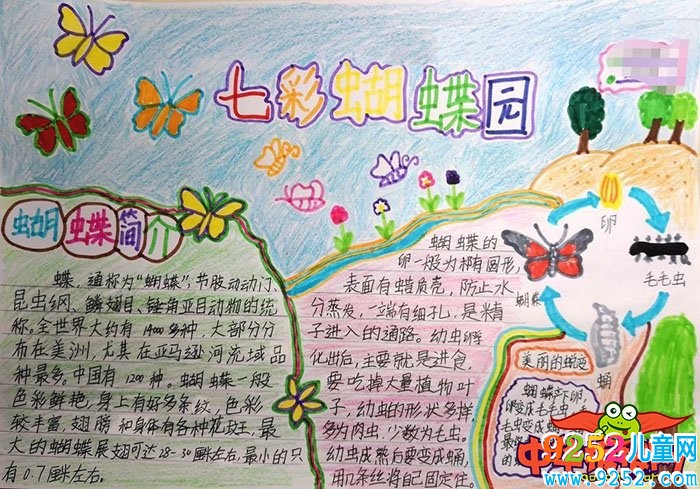 七彩蝴蝶园
蝴蝶简介
蝶,通称为“蝴蝶”,节肢动动门、
昆虫纲、鳞翅目、锤角亚目动物的统
称。全世界大约有14000多种,大部分分
布在美洲,尤其在亚马逊河流域品
种最多。中国有1200种。蝴蝶一般
色彩鲜艳,身上有好多条纹,色彩
较丰富,翅膀和身体有各种花斑,最
大的蝴蝶展翅可达28-30厘米左右,最小的只
有0.7厘米左右。
蝴蝶的
卵一般为椭有圆形,
表面有蜡质壳,防止水
分蒸发,一端有细孔,是精
子进入的通路。幼虫孵
化出后,主要就是进食,
要吃掉大量植物叶
子,幼虫的形状多样,
多为肉虫,少数为毛虫。
幼虫成熟后要变成蛹,
用几条丝将自己固定住。
卵
毛毛虫
蛹
蝴蝶
美丽的蜕变
蝴蝶产下卵,
卵变成毛毛虫,
毛虫变成蛹
9252儿童网
www.9252.com